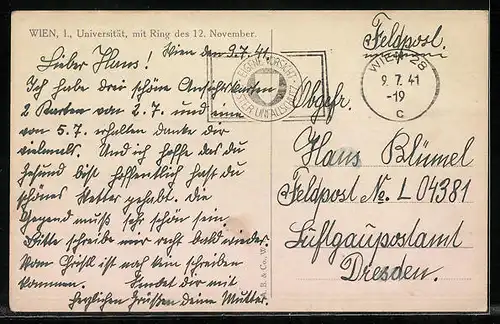 WIEN, I., Universität, mit Ring des 12. November.
Wien den 9.7.41.
Lieber Hans!
Ich habe drei schöne Ansichtskarten
2 Karten vom 2.7. und eine
vom 5.7. erhalten danke dir
vielmals. Und ich hoffe das du
gesund bist hoffentlich hast du
schönes Wetter gehabt. Die
Gegend muß sehr schön sein.
Bitte schreibe mir recht bald wieder.
Vom Christl ist noch kein schreiben
kommen. Sendet dir mit
herzlichen Grüßen deine Mutter.
A. B. & Co. W.
Feldpost.
WIEN 28
9. 7. 41
-19
c
Obgefr.
Hans Blümel
Feldpost No. L 04381
Luftgaupostamt
Dresden.